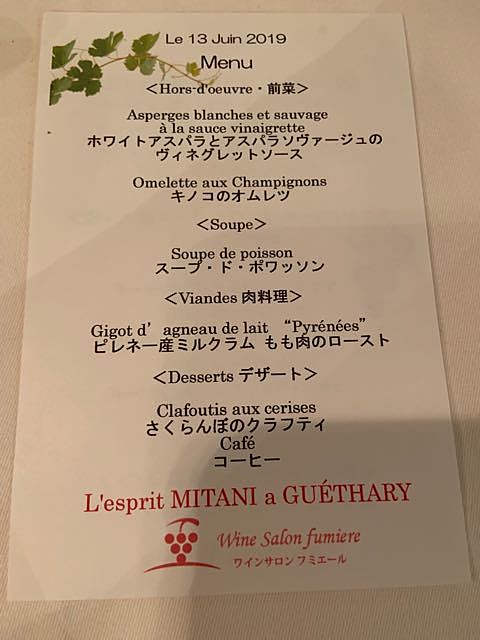 Le 13 Juin 2019
Menu
＜Hors-d'oeuvre・前菜＞
Asperges blanches et sauvage
à la sauce vinaigrette
ホワイトアスパラとアスパラソヴァージュの
ヴィネグレットソース
Omelette aux Champignons
キノコのオムレツ
＜Soupe＞
Soupe de poisson
スープ・ド・ポワッソン
＜Viandes 肉料理＞
Gigot d’agneau de lait “Pyrénées”
ピレネー産ミルクラム もも肉のロースト
＜Desserts デザート＞
Clafoutis aux cerises
さくらんぼのクラフティ
Café
コーヒー
L'esprit MITANI a GUÉTHARY
Wine Salon fumiere
ワインサロン フミエール